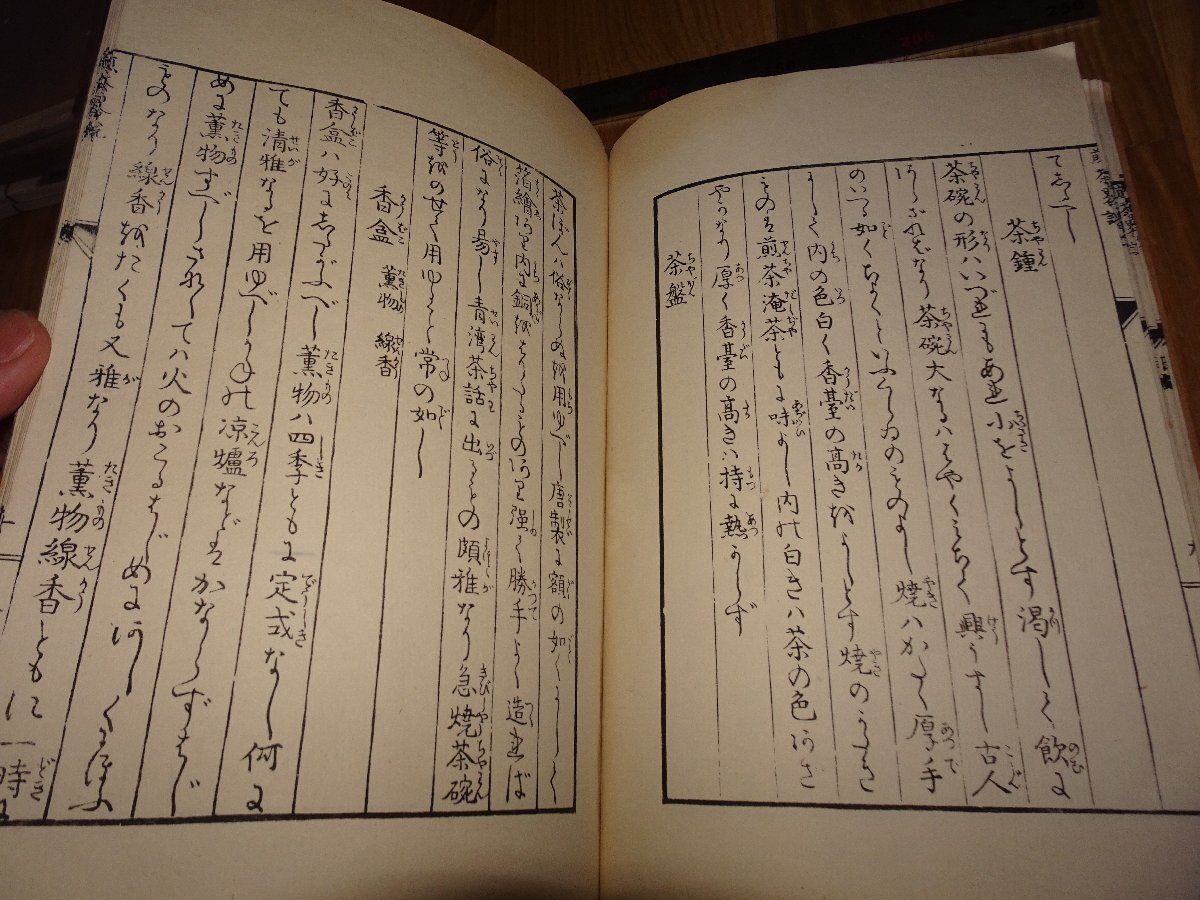 てしるべし
茶鐘
茶碗の形ハいづれもあれ小をよしとす渇して飲に
茶碗大なるハはやくみちく興うすし古人
のいへる如くちよくといふくらゐのものよし焼ハかたく厚手
にして内の色白く香臺の高きをよしとす焼の
もの煎茶淹茶ともに味よし内の白きハ茶の色
やかなり厚く香臺の高きは持に熱からず
茶盤
茶ぼんハ俗ならぬを用ゆべし唐製に額の如くにして
箔繪あり内に銅をはりたるものあり強て勝手よく造れば
俗になり易し青湾茶話に出るもの頗雅なり急焼茶碗
等をのせて用ゆること常の如し
香盒 薫物 線香
香盒ハ好にしたがふべし薫物ハ四季ともに定式なし何に
ても清雅なるを用ゆべしかねの凉爐などはかならずはじ
めに薫物すべしされしてハ火のおこるはじめにあしくにほふ
ものなり線香をたくも又雅なり薫物線香ともに一時に